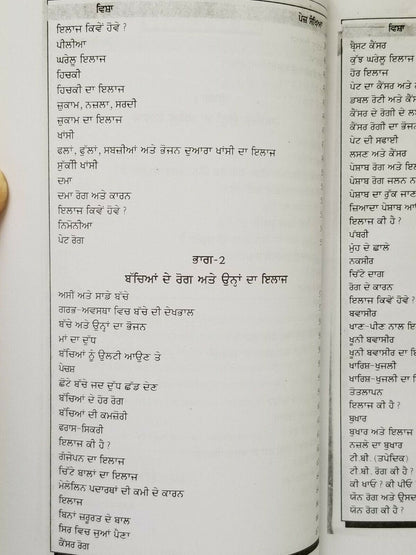 ਵਿਸ਼ਾ
ਪੇਜ਼ ਸੰਖਿਆ
ਇਲਾਜ ਕਿਵੇਂ ਹੋਵੇ ?
ਪੀਲੀਆ
ਘਰੇਲੂ ਇਲਾਜ
ਹਿਚਕੀ
ਹਿਚਕੀ ਦਾ ਇਲਾਜ
ਜ਼ੁਕਾਮ, ਨਜ਼ਲਾ, ਸਰਦੀ
ਜ਼ੁਕਾਮ ਦਾ ਇਲਾਜ
ਖਾਂਸੀ
ਫਲਾਂ, ਫੁੱਲਾਂ, ਸਬਜ਼ੀਆਂ ਅਤੇ ਭੋਜਨ ਦੁਆਰਾ ਖਾਂਸੀ ਦਾ ਇਲਾਜ
ਸੁੱਕੀ ਖਾਂਸੀ
ਦਮਾ
ਦਮਾ ਰੋਗ ਅਤੇ ਕਾਰਨ
ਇਲਾਜ ਕਿਵੇਂ ਹੋਵੇ ?
ਨਿਮੋਨੀਆ
ਪੇਟ ਰੋਗ
ਭਾਗ-2
ਬੱਚਿਆਂ ਦੇ ਰੋਗ ਅਤੇ ਉਨ੍ਹਾਂ ਦਾ ਇਲਾਜ
ਅਸੀਂ ਅਤੇ ਸਾਡੇ ਬੱਚੇ
ਗਰਭ-ਅਵਸਥਾ ਵਿਚ ਬੱਚੇ ਦੀ ਦੇਖਭਾਲ
ਬੱਚੇ ਅਤੇ ਉਨ੍ਹਾਂ ਦਾ ਭੋਜਨ
ਮਾਂ ਦਾ ਦੁੱਧ
ਬੱਚਿਆਂ ਨੂੰ ਉਲਟੀ ਆਉਣ ਤੇ
ਪੇਚਸ਼
ਛੋਟੇ ਬੱਚੇ ਜਦ ਦੁੱਧ ਛੱਡ ਦੇਣ
ਬੱਚਿਆਂ ਦੇ ਹੋਰ ਰੋਗ
ਬੱਚਿਆਂ ਦੀ ਕਮਜ਼ੋਰੀ
ਫਰਾਸ-ਸਿਕਰੀ
ਇਲਾਜ ਕੀ ਹੈ ?
ਗੰਜੇਪਨ ਦਾ ਇਲਾਜ
ਚਿੱਟੇ ਬਾਲਾਂ ਦਾ ਇਲਾਜ
ਮੇਲੇਲਿਨ ਪਦਾਰਥਾਂ ਦੀ ਕਮੀ ਦੇ ਕਾਰਨ
ਇਲਾਜ
ਬਿਨਾਂ ਜ਼ਰੂਰਤ ਦੇ ਬਾਲ
ਸਿਰ ਵਿਚ ਜੂਆਂ ਪੈਣਾ
ਕੈਂਸਰ ਰੋਗ
ਵਿਸ਼ਾ
ਬ੍ਰੈਸਟ ਕੈਂਸਰ
ਕੁੱਝ ਘਰੇਲੂ ਇਲਾਜ
ਹੋਰ ਇਲਾਜ
ਪੇਟ ਦਾ ਕੈਂਸਰ ਅਤੇ
ਡਬਲ ਰੋਟੀ ਅਤੇ ਕੈਂ
ਕੈਂਸਰ ਦੇ ਰੋਗੀ ਦੇ ਲ
ਕੈਂਸਰ ਰੋਗੀ ਦਾ ਭੋਜ
ਪੇਟ ਦੀ ਸਫਾਈ
ਲਸਣ ਅਤੇ ਕੈਂਸਰ
ਪੇਸ਼ਾਬ ਰੋਗ ਅਤੇ ਇਲ
ਪੇਸ਼ਾਬ ਰੋਗ ਜਲਨ ਨ
ਪੇਸ਼ਾਬ ਦਾ ਰੁੱਕ ਜਾਣ
ਜ਼ਿਆਦਾ ਪੇਸ਼ਾਬ ਆ
ਇਲਾਜ ਕੀ ਹੈ ?
ਪੱਥਰੀ
ਮੂੰਹ ਦੇ ਛਾਲੇ
ਨਕਸੀਰ
ਚਿੱਟੇ ਦਾਗ
ਰੋਗ ਦੇ ਕਾਰਨ
ਇਲਾਜ ਕਿਵੇਂ ਹੋਵੇ ?
ਬਵਾਸੀਰ
ਖਾਣ-ਪੀਣ ਨਾਲ ਇ
ਖੂਨੀ ਬਵਾਸੀਰ
ਖੂਨੀ ਬਵਾਸੀਰ ਦਾ ਇ
ਖਾਰਿਸ਼-ਖੁਜਲੀ
ਖਾਰਿਸ਼-ਖੁਜਲੀ ਦਾ
ਤੋਤਲਾਪਨ
ਇਲਾਜ ਕੀ ਹੈ ?
ਬੁਖਾਰ
ਬੁਖਾਰ ਅਤੇ ਇਲਾਜ
ਨਜ਼ਲੇ ਦਾ ਬੁਖਾਰ
ਟੀ.ਬੀ. (ਤਪੇਦਿਕ)
ਟੀ.ਬੀ. ਰੋਗ ਕੀ ਹੈ ?
ਕੀ ਖਾਓ ? ਕੀ ਪੀਓ
ਯੌਨ ਰੋਗ ਅਤੇ ਉਸਦਾ
ਯੌਨ ਰੋਗ ਕੀ ਹੈ ?